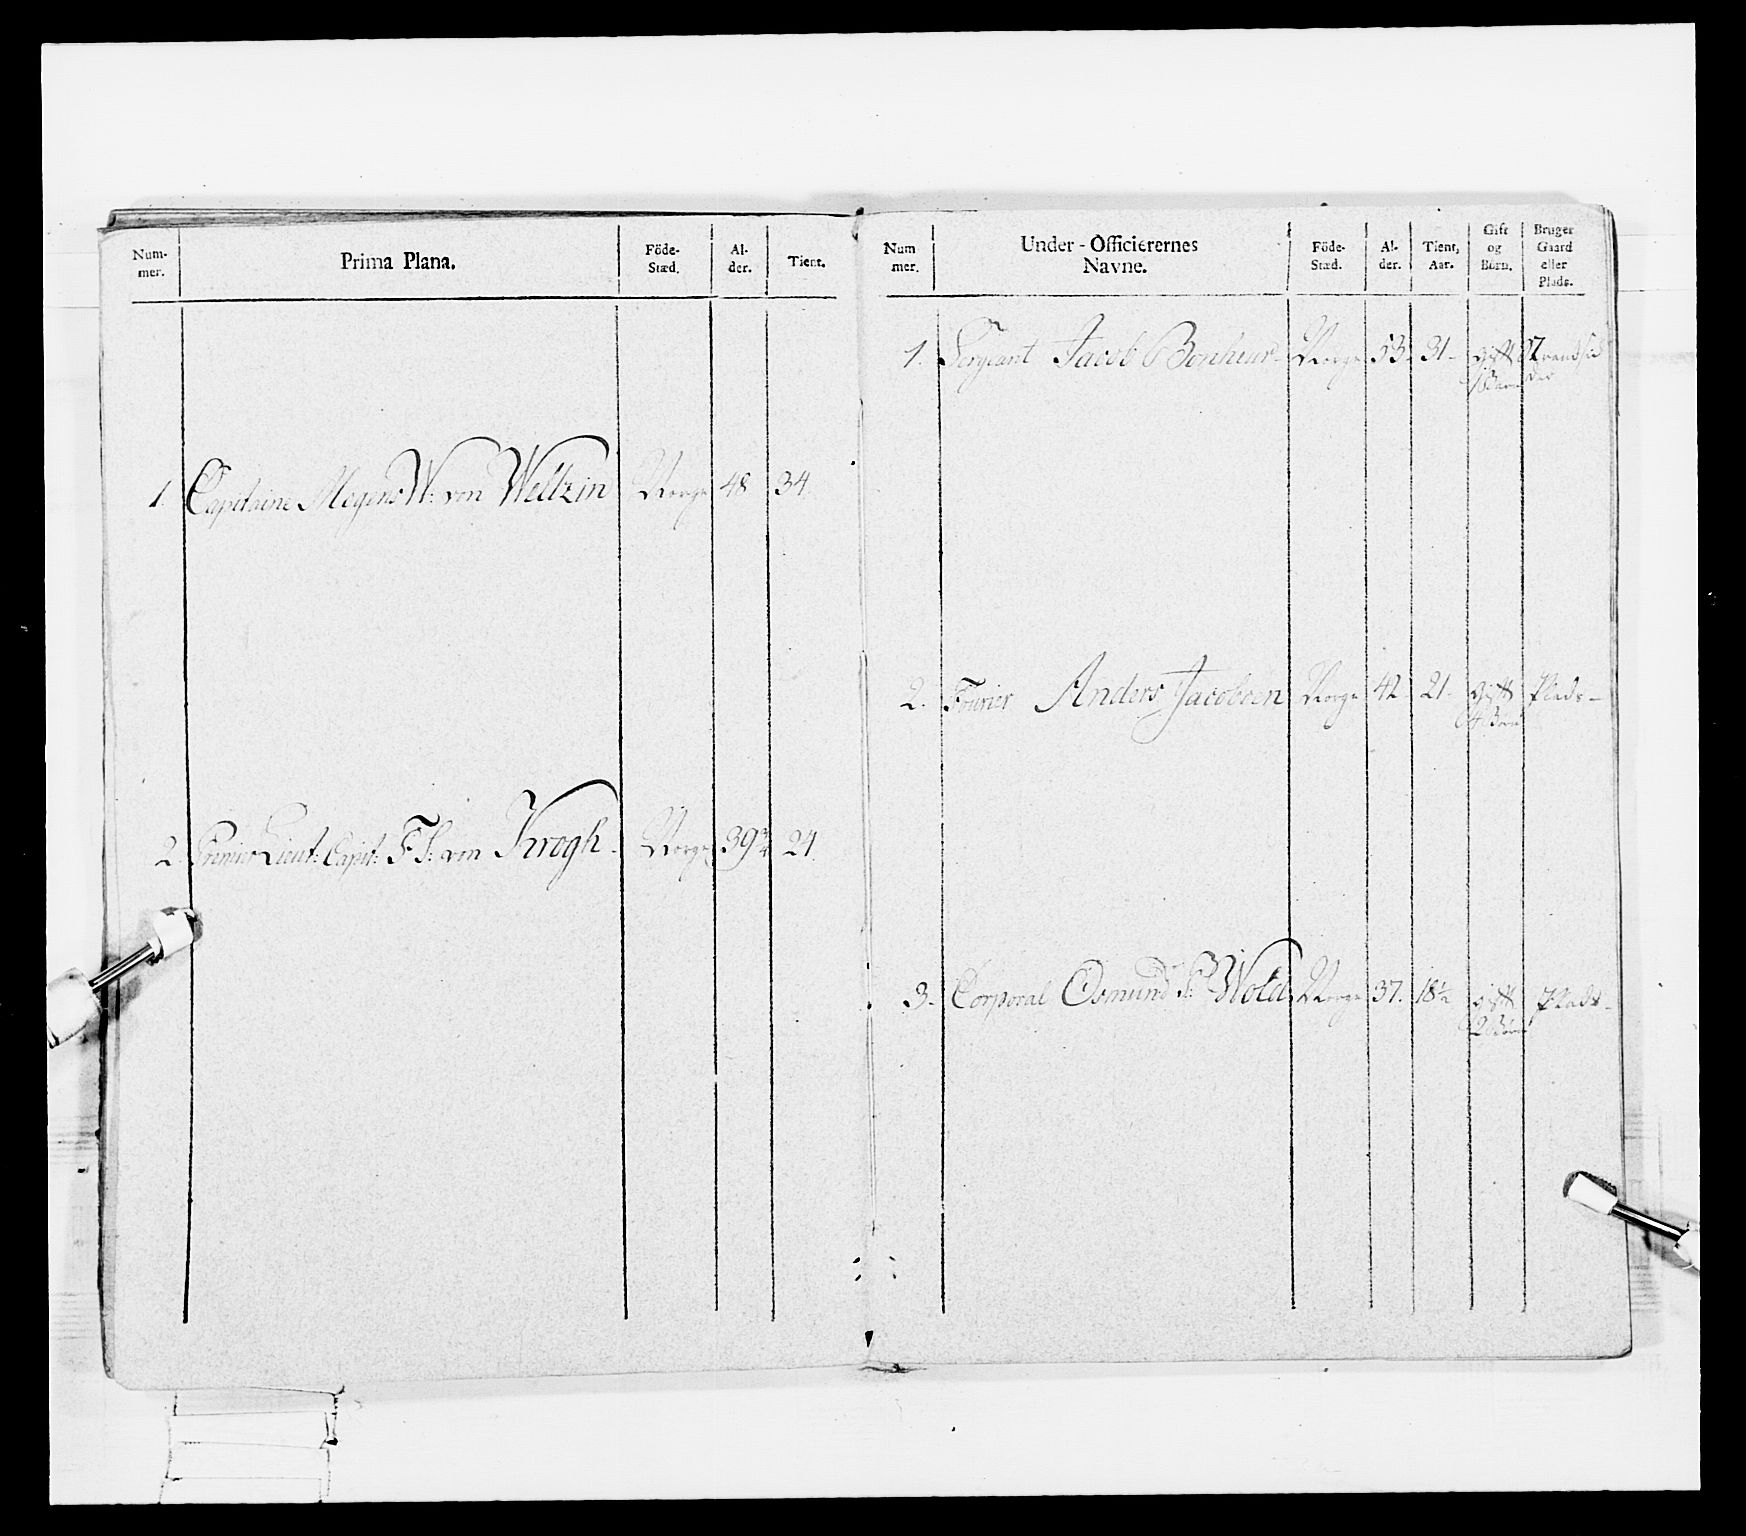 Num-
mer.
Prima Plana.
Föde-
Stæd.
Al-
der.
Tient.
1. Capitaine Mogens W: von Weltzin Norge 48 34.
2. Premier Lieut: Capit: F: S: von Krogh. Norge 39¾ 24.
Num
mer.
Under-Officierernes
Navne.
Föde-
Stæd.
Al-
der.
Tient,
Aar.
Gift
og
Børn.
Bruger
Gaard
eller
Plads.
1. Sergeant Jacob Bonheur Norge 53. 31- gift
1 Barn
2. Fourier Anders Jacobsen Norge 42 21- gift Plads-
4 Børn
3. Corporal Osmund S: Wold Norge 37. 18½ gift Plads-
2 Børn